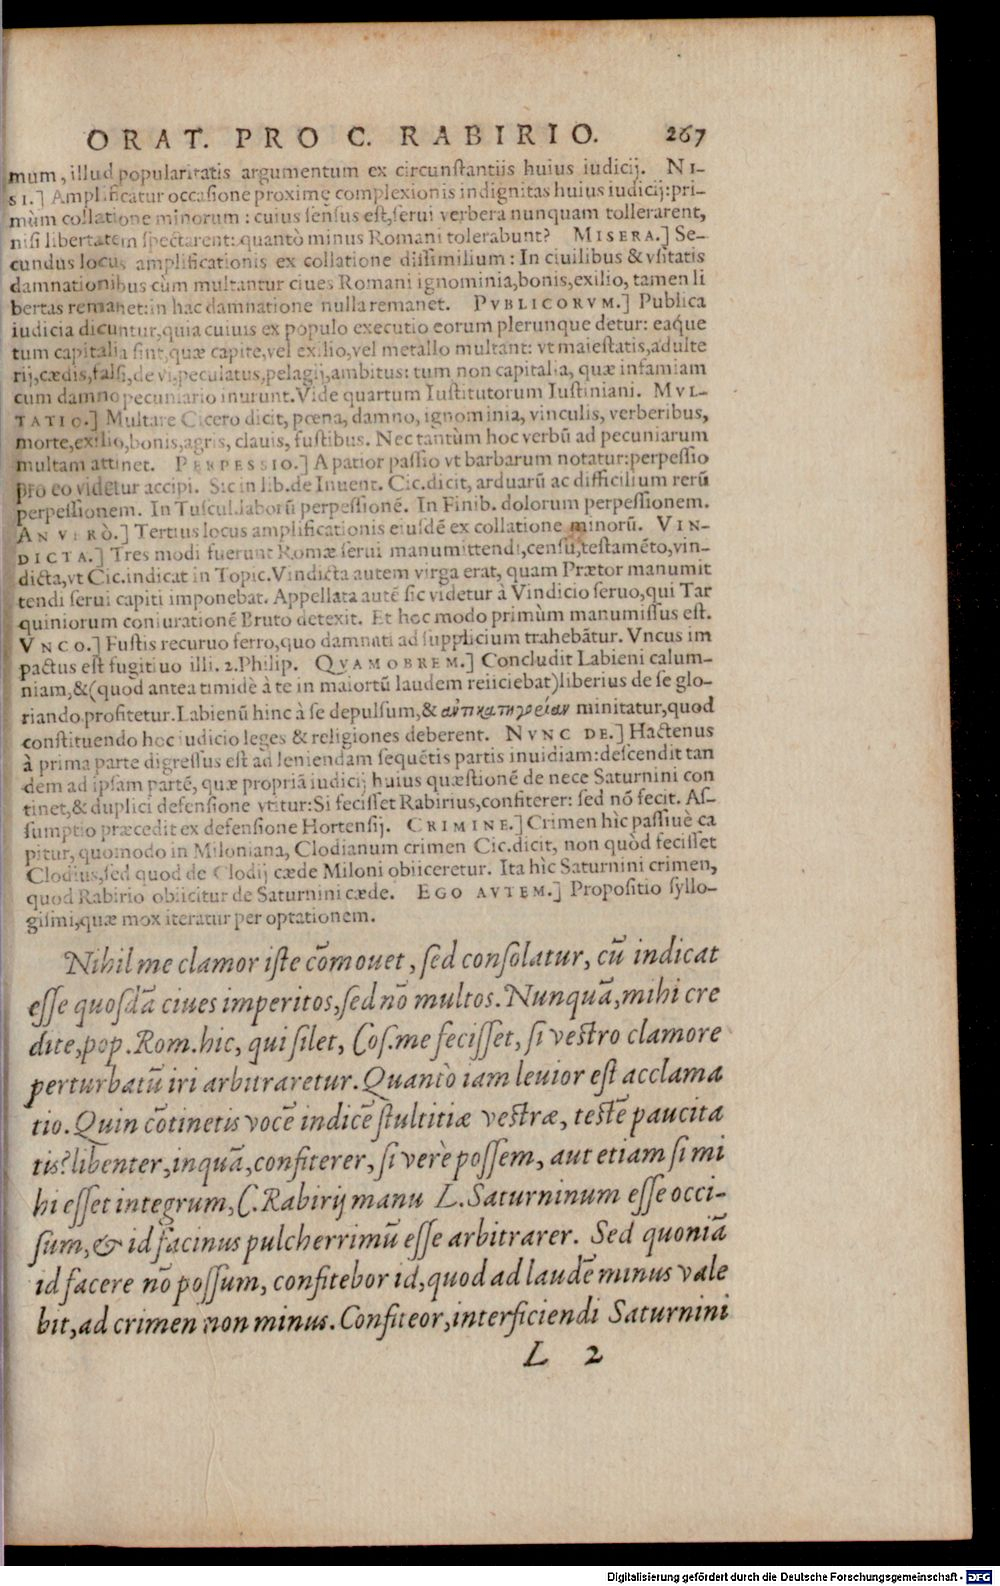 ORAT. PRO C. RABIRIO. 267
mum, illud popularitatis argumentum ex circunſtantiis huius iudicij. NI-
SI.] Amplificatur occaſione proximę complexionis indignitas huius iudicij: pri-
mùm collatione minorum: cuius ſenſus eſt, ſerui verbera nunquam tollerarent,
niſi libertatem ſpectarent: quantò minus Romani tolerabunt? MISERA.] Se-
cundus locus amplificationis ex collatione diſſimilium: In ciuilibus & vſitatis
damnationibus cùm multantur ciues Romani ignominia, bonis, exilio, tamen li
bertas remanet: in hac damnatione nulla remanet. PVBLICORVM.] Publica
iudicia dicuntur, quia cuiuis ex populo executio eorum plerunque detur: eaq́ue
tum capitalia ſint, quæ capite, vel exilio, vel metallo multant: vt maieſtatis, adulte
rij, cædis, falſi, de vi, peculatus, pelagij, ambitus: tum non capitalia, quæ infamiam
cum damno pecuniario inurunt. Vide quartum Iuſtitutorum Iuſtiniani. MVL-
TATIO.] Multare Cicero dicit, pœna, damno, ignominia, vinculis, verberibus,
morte, exilio, bonis, agris, clauis, fuſtibus. Nec tantùm hoc verbũ ad pecuniarum
multam attinet. PERPESSIO.] A patior paſſio vt barbarum notatur: perpeſſio
pro eo videtur accipi. Sic in lib. de Inuent. Cic. dicit, arduarũ ac difficilium rerũ
perpeſſionem. In Tuſcul. laborũ perpeſſionẽ. In Finib. dolorum perpeſſionem.
AN VERÒ.] Tertius locus amplificationis eiuſdẽ ex collatione minorũ. VIN-
DICTA.] Tres modi fuerunt Romæ ſerui manumittendi, cenſu, teſtamẽto, vin-
dicta, vt Cic. indicat in Topic. Vindicta autem virga erat, quam Prætor manumit
tendi ſerui capiti imponebat. Appellata autẽ ſic videtur à Vindicio ſeruo, qui Tar
quiniorum coniurationẽ Bruto detexit. Et hoc modo primùm manumiſſus eſt.
VNCO.] Fuſtis recuruo ferro, quo damnati ad ſupplicium trahebãtur. Vncus im
pactus eſt fugitiuo illi. 2. Philip. QVAMOBREM.] Concludit Labieni calum-
niam, & (quod antea timidè à te in maiortũ laudem reiiciebat) liberius de ſe glo-
riando profitetur. Labienũ hinc à ſe depulſum, & ἀντικατηγορείαν minitatur, quod
conſtituendo hoc iudicio leges & religiones deberent. NVNC DE.] Hactenus
à prima parte digreſſus eſt ad leniendam ſequẽtis partis inuidiam: deſcendit tan
dem ad ipſam partẽ, quæ propriã iudicij huius quæſtionẽ de nece Saturnini con
tinet, & duplici defenſione vtitur: Si feciſſet Rabirius, confiterer: ſed nõ fecit. Aſ-
ſumptio præcedit ex defenſione Hortenſij. CRIMINE.] Crimen hìc paſſiuè ca
pitur, quomodo in Miloniana, Clodianum crimen Cic. dicit, non quòd feciſſet
Clodius, ſed quod de Clodij cæde Miloni obiiceretur. Ita hìc Saturnini crimen,
quod Rabirio obiicitur de Saturnini cæde. EGO AVTEM.] Propoſitio ſyllo-
giſmi, quæ mox iteratur per optationem.
Nihil me clamor iſte cõmouet, ſed conſolatur, cũ indicat
eſſe quoſdã ciues imperitos, ſed nõ multos. Nunquã, mihi cre
dite, pop. Rom. hic, qui ſilet, Coſ. me feciſſet, ſi veſtro clamore
perturbatũ iri arbitraretur. Quantò iam leuior eſt acclama
tio. Quin cõtinetis vocẽ indicẽ ſtultitiæ veſtræ, teſtẽ paucita
tis? libenter, inquã, confiterer, ſi verè poſſem, aut etiam ſi mi
hi eſſet integrum, C. Rabirij manu L. Saturninum eſſe occi-
ſum, & id facinus pulcherrimũ eſſe arbitrarer. Sed quoniã
id facere nõ poſſum, confitebor id, quod ad laudẽ minus vale
bit, ad crimen non minus. Confiteor, interficiendi Saturnini
L 2
Digitalisierung gefördert durch die Deutsche Forschungsgemeinschaft - DFG